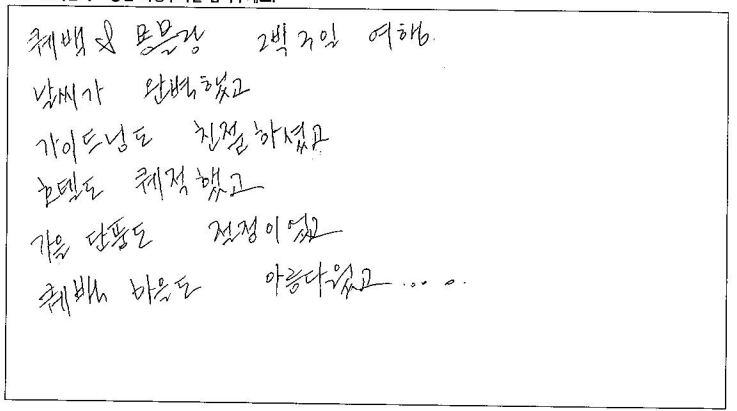 퀘백 & 몽블랑 2박3일 여행.
날씨가 완벽했고
가이드님도 친절하셨고
호텔도 퀘적했고
가을 단풍도 절정이었고
퀘백 마을도 아름다웠고.....